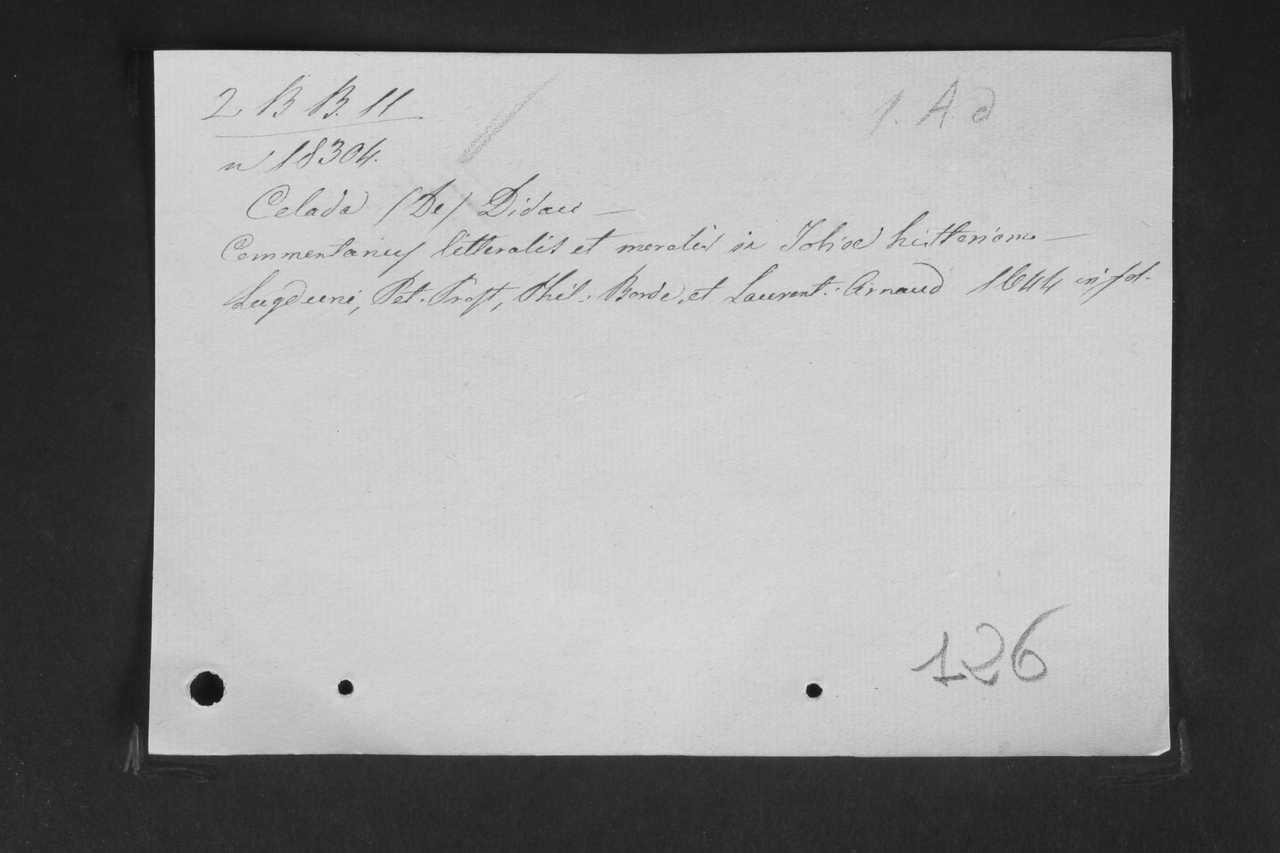 2 B B. 11
1. A d
n 18304.
Celada (De) Didaci —
Commentarius litteralis et moralis in Tobiae historiam —
Lugduni, Pet. Prost, Phil: Borde, et Laurent: Arnaud 1644 in fol.
126